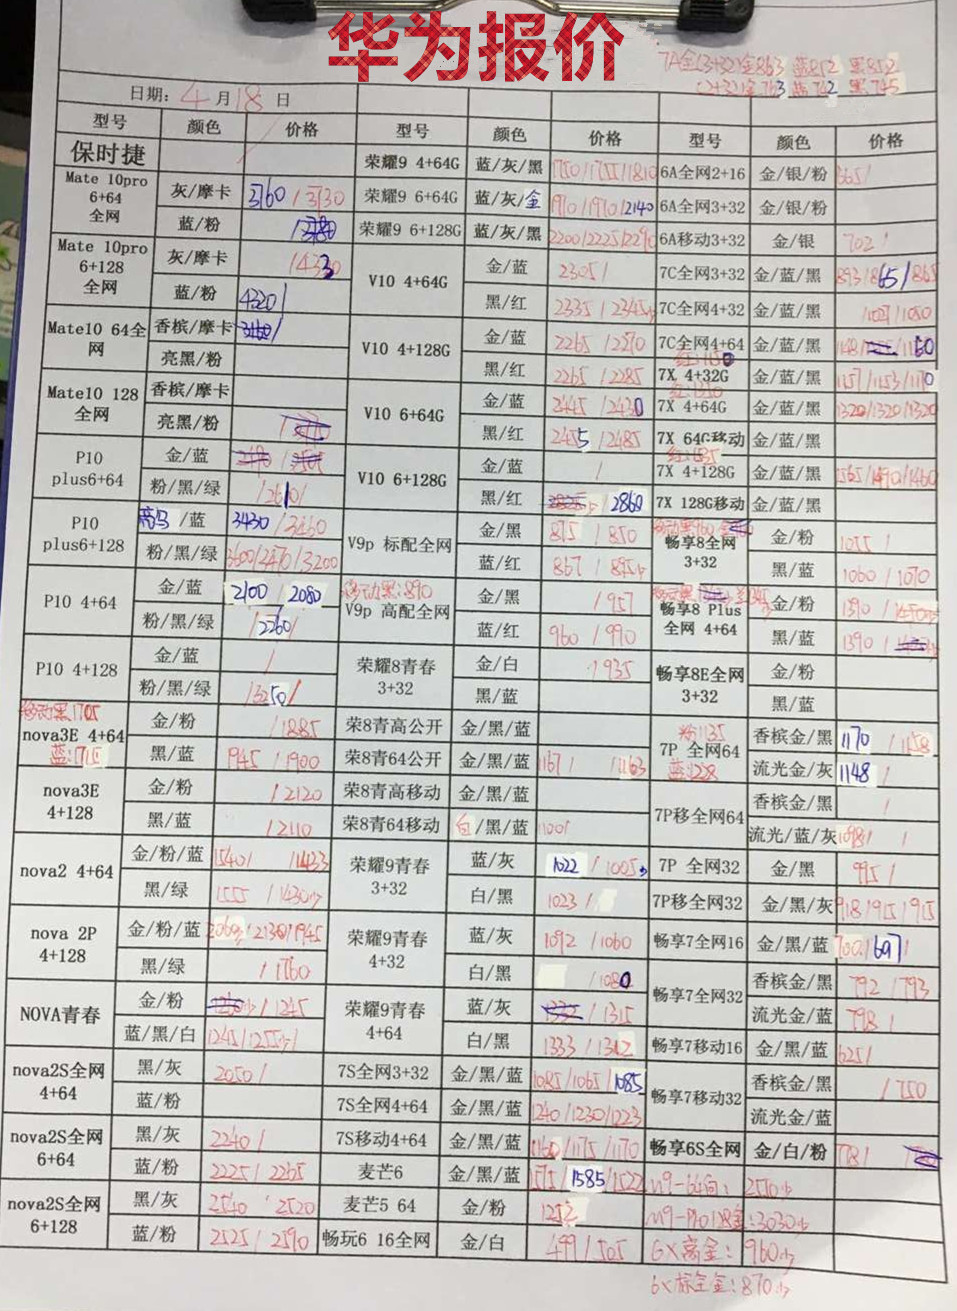 华为报价
7A全(3+32)金863 蓝852 黑852
(2+32)金763 蓝742 黑745
日期: 4 月 18 日
型号 颜色 价格 型号 颜色 价格 型号 颜色 价格
保时捷 / 荣耀9 4+64G 蓝/灰/黑 1750/1755/1810 6A全网2+16 金/银/粉 565/
Mate 10pro 6+64 全网 灰/摩卡 3760/3730 荣耀9 6+64G 蓝/灰/金 1970/1970/2140 6A全网3+32 金/银/粉
蓝/粉 荣耀9 6+128G 蓝/灰/黑 2200/2225/2290 6A移动3+32 金/银 702/
Mate 10pro 6+128 全网 灰/摩卡 /4330 V10 4+64G 金/蓝 2305/ 7C全网3+32 金/蓝/黑 893/865/865
蓝/粉 4320/ 黑/红 2335/2345 7C全网4+32 金/蓝/黑 1027/1050
Mate10 64全网 香槟/摩卡 V10 4+128G 金/蓝 2265/2270 7C全网4+64 金/蓝/黑
亮黑/粉 黑/红 2265/2285 7X 4+32G 金/蓝/黑 1157/1153/1170
Mate10 128 全网 香槟/摩卡 V10 6+64G 金/蓝 2445/2430 7X 4+64G 金/蓝/黑 1320/1320/1320
亮黑/粉 黑/红 2455/2485 7X 64G移动 金/蓝/黑
P10 plus6+64 金/蓝 V10 6+128G 金/蓝 / 7X 4+128G 金/蓝/黑 1565/1490/1460
粉/黑/绿 /2610/ 黑/红 /2860 7X 128G移动 金/蓝/黑
P10 plus6+128 /蓝 3430/3260 V9p 标配全网 金/黑 875/850 畅享8全网 3+32 金/粉 1055/
粉/黑/绿 3600/2470/3200 蓝/红 867/ 黑/蓝 1060/1070
P10 4+64 金/蓝 2100/2080 移动黑:890 V9p 高配全网 金/黑 /957 畅享8 Plus 全网 4+64 金/粉 1390/
粉/黑/绿 /2260/ 蓝/红 960/990 黑/蓝 1390/
P10 4+128 金/蓝 / 荣耀8青春 3+32 金/白 畅享8E全网 3+32 金/粉
粉/黑/绿 /3250/ 黑/蓝 黑/蓝
移动黑1705 nova3E 4+64 蓝:1715 金/粉 /1885 荣8青高公开 金/黑/蓝 粉1135 7P 全网64 香槟金/黑 1170/1158
黑/蓝 1945/1900 荣8青64公开 金/黑/蓝 1167/1163 流光金/灰 1148/
nova3E 4+128 金/粉 /2120 荣8青高移动 金/黑/蓝 7P移全网64 香槟金/黑 /
黑/蓝 /2110 荣8青64移动 白/黑/蓝 1100/ 流光/蓝/灰 1098/ /
nova2 4+64 金/粉/蓝 1540/ /1433 荣耀9青春 3+32 蓝/灰 1022/1005 7P 全网32 金/黑 995/
黑/绿 1555/1430 白/黑 1023/ 7P移全网32 金/黑/灰 918/915/915
nova 2P 4+128 金/粉/蓝 2060/2130/1945 荣耀9青春 4+32 蓝/灰 1092/1060 畅享7全网16 金/黑/蓝 700/697/
黑/绿 /1760 白/黑 /1080 畅享7全网32 香槟金/黑 792/793
NOVA青春 金/粉 /1245 荣耀9青春 4+64 蓝/灰 /1315 流光金/蓝 798/
蓝/黑/白 1245/1255/ 白/黑 1333/1312 畅享7移动16 金/黑/蓝 625/
nova2S全网 4+64 黑/灰 2050/ 7S全网3+32 金/黑/蓝 1085/1065/1085 畅享7移动32 香槟金/黑 /750
蓝/粉 7S全网4+64 金/黑/蓝 1240/1230/1223 流光金/蓝
nova2S全网 6+64 黑/灰 2240/ 7S移动4+64 金/黑/蓝 1160/1175/1170 畅享6S全网 金/白/粉 778/
蓝/粉 2225/2265 麦芒6 金/黑/蓝 1575/1585/1522 M9-64白: 2570
nova2S全网 6+128 黑/灰 2540/2520 麦芒5 64 金/粉 1252 M9-Pro128金:3030
蓝/粉 2525/2590 畅玩6 16全网 金/白 499/505 6X高金: 960
6X标全金:870